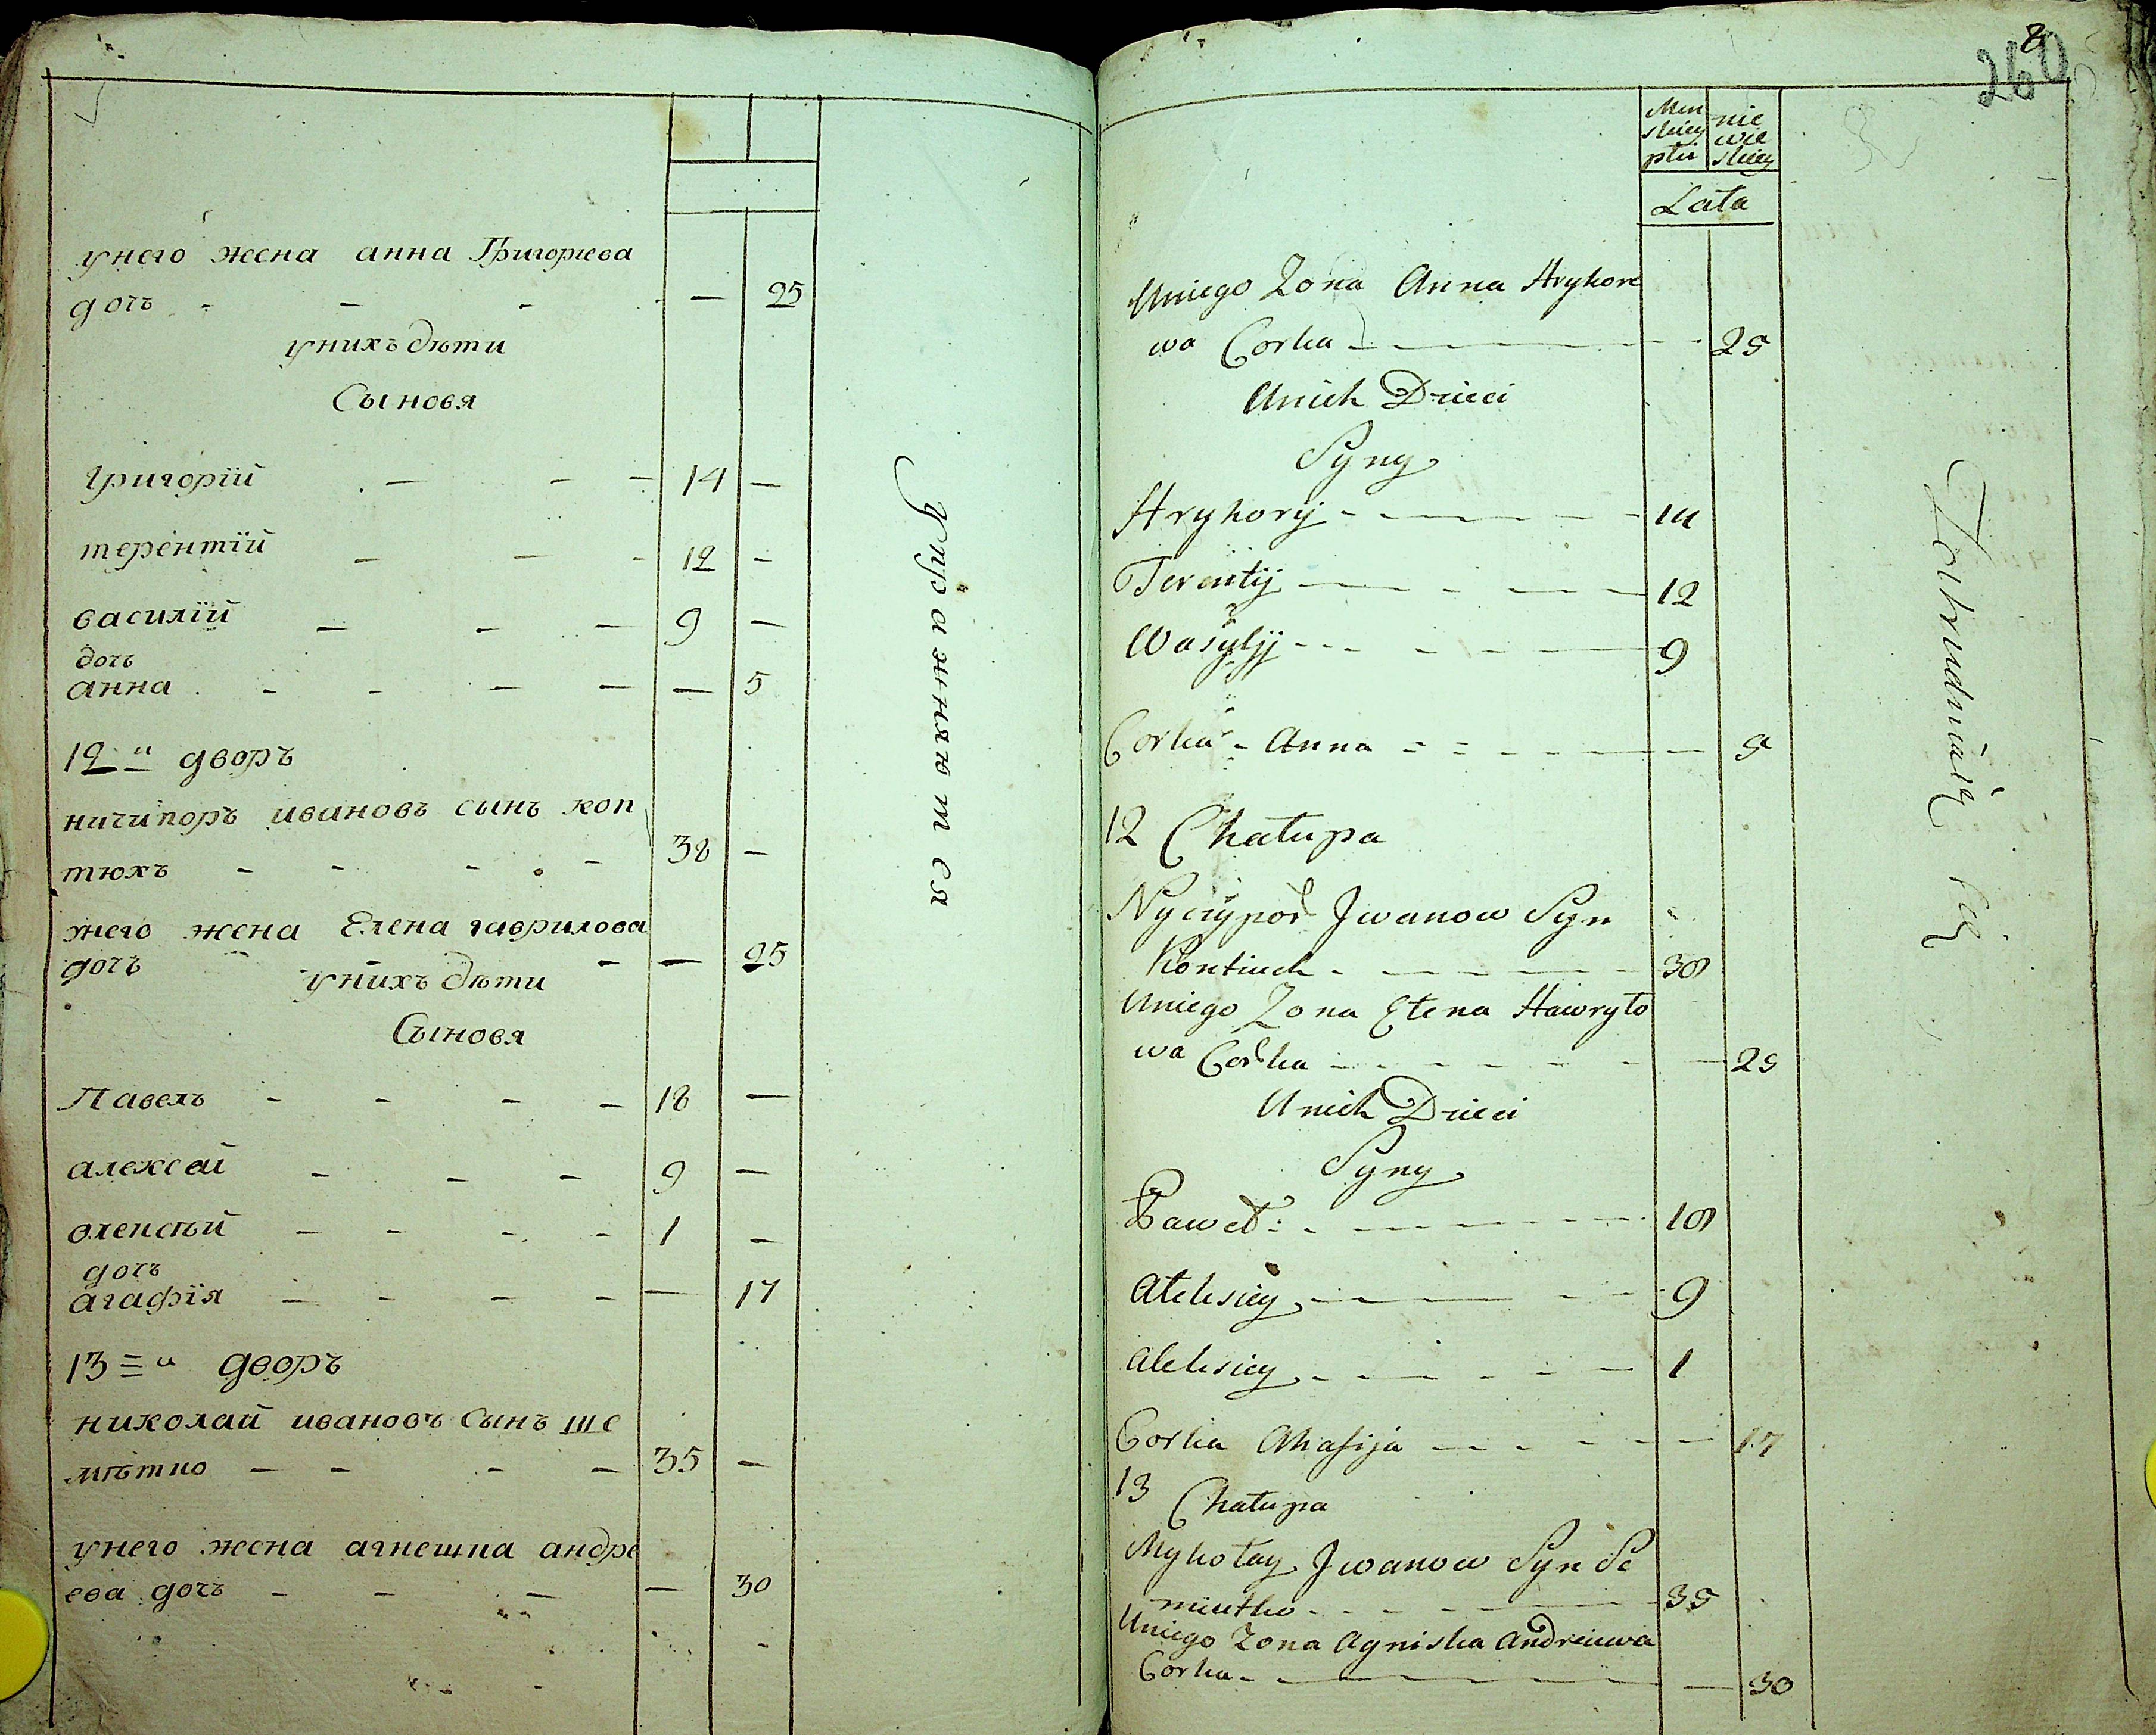 унего жена анна Григориева
дочь - - - - — 25
унихъ дѣти
Сыновя
григорїй - - - 14 —
терентїй - - - 12 -
василїй - - - 9 —
дочь
анна - - - - — 5
12 й дворъ
ничипоръ ивановъ сынъ коп
тюхъ - - - - 38 —
унего жена Елена гаврилова
дочь - - - — 25
унихъ дѣти
Сыновя
Павелъ - - - - 18 —
алексей - - - 9 —
олексѣй - - - - 1 -
дочь
агафїя - - - - — 17
13 й дворъ
николай ивановъ сынъ ше
мѣтко - - - - 35 —
унего жена агнешка андре
ева дочь - - - — 30
Упражняются
8
260
Men
skiey
płci
nie
wie
skiey
Lata
Uniego Zona Anna Hryhore
wa Corka - - - 25
Unich Dzieci
Syny
Hryhoryi - - - 14
Terentij - - - 12
Wasylij - - - 9
Corka - Anna - - - 5
12 Chałupa
Nyczypor Jwanow Syn
Kontiuch - - - 38
Uniego Zona Ełena Hawryło
wa Corka - - - 25
Unich Dzieci
Syny
Paweł - - - 18
Ałeksiey - - - 9
Aleksiey - - - 1
Corka Ahafija - - - 17
13
Chałupa
Mykołay Jwanow Syn Se
mintko - - - 35
Uniego Zona Agniska Andreiewa
Corka - - - 30
Zatrudniaią się